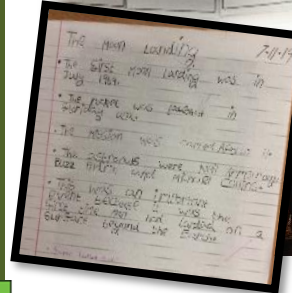 The Moon Landing
7-11-19
• The first moon Landing was in
July 1969.
• The rocket was in
Florida
• The Mission was named Apollo 11
• The astronauts were Neil Armstrong
Buzz and Michael Collins.
• This was an important
event because it was the
first time man had landed on a
surface beyond the Earth.